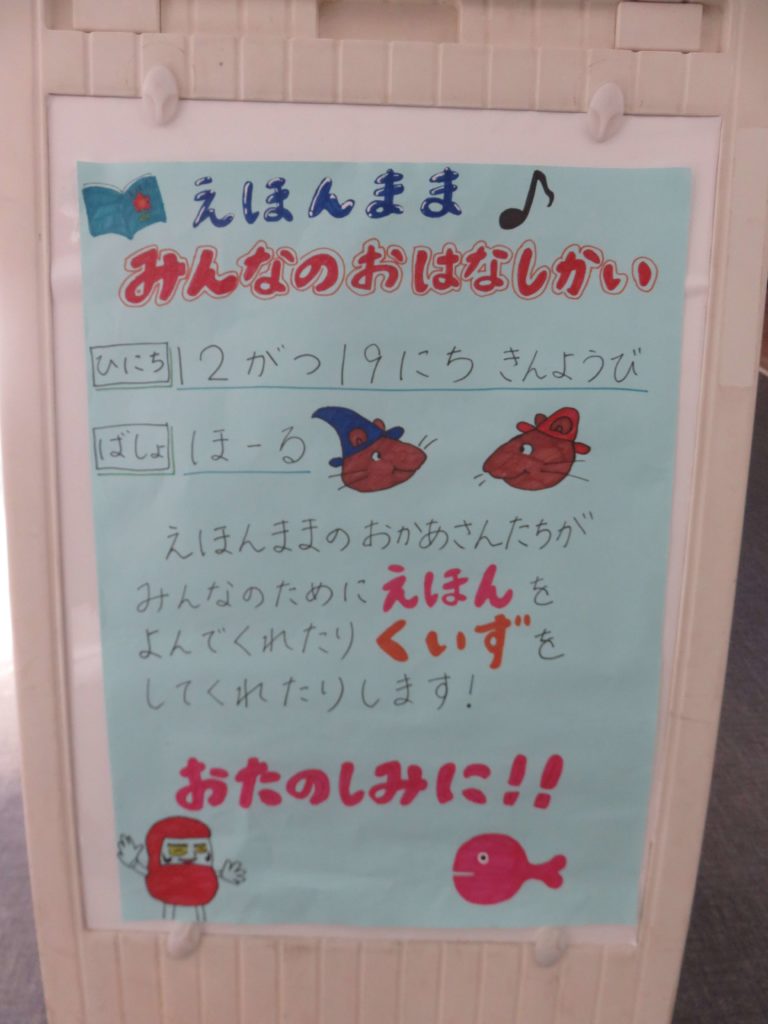 えほんまま♪
みんなのおはなしかい
ひにち 12がつ19にち きんようび
ばしょ ほーる
えほんままのおかあさんたちが
みんなのために えほんを
よんでくれたり くいずを
してくれたりします!
おたのしみに!!